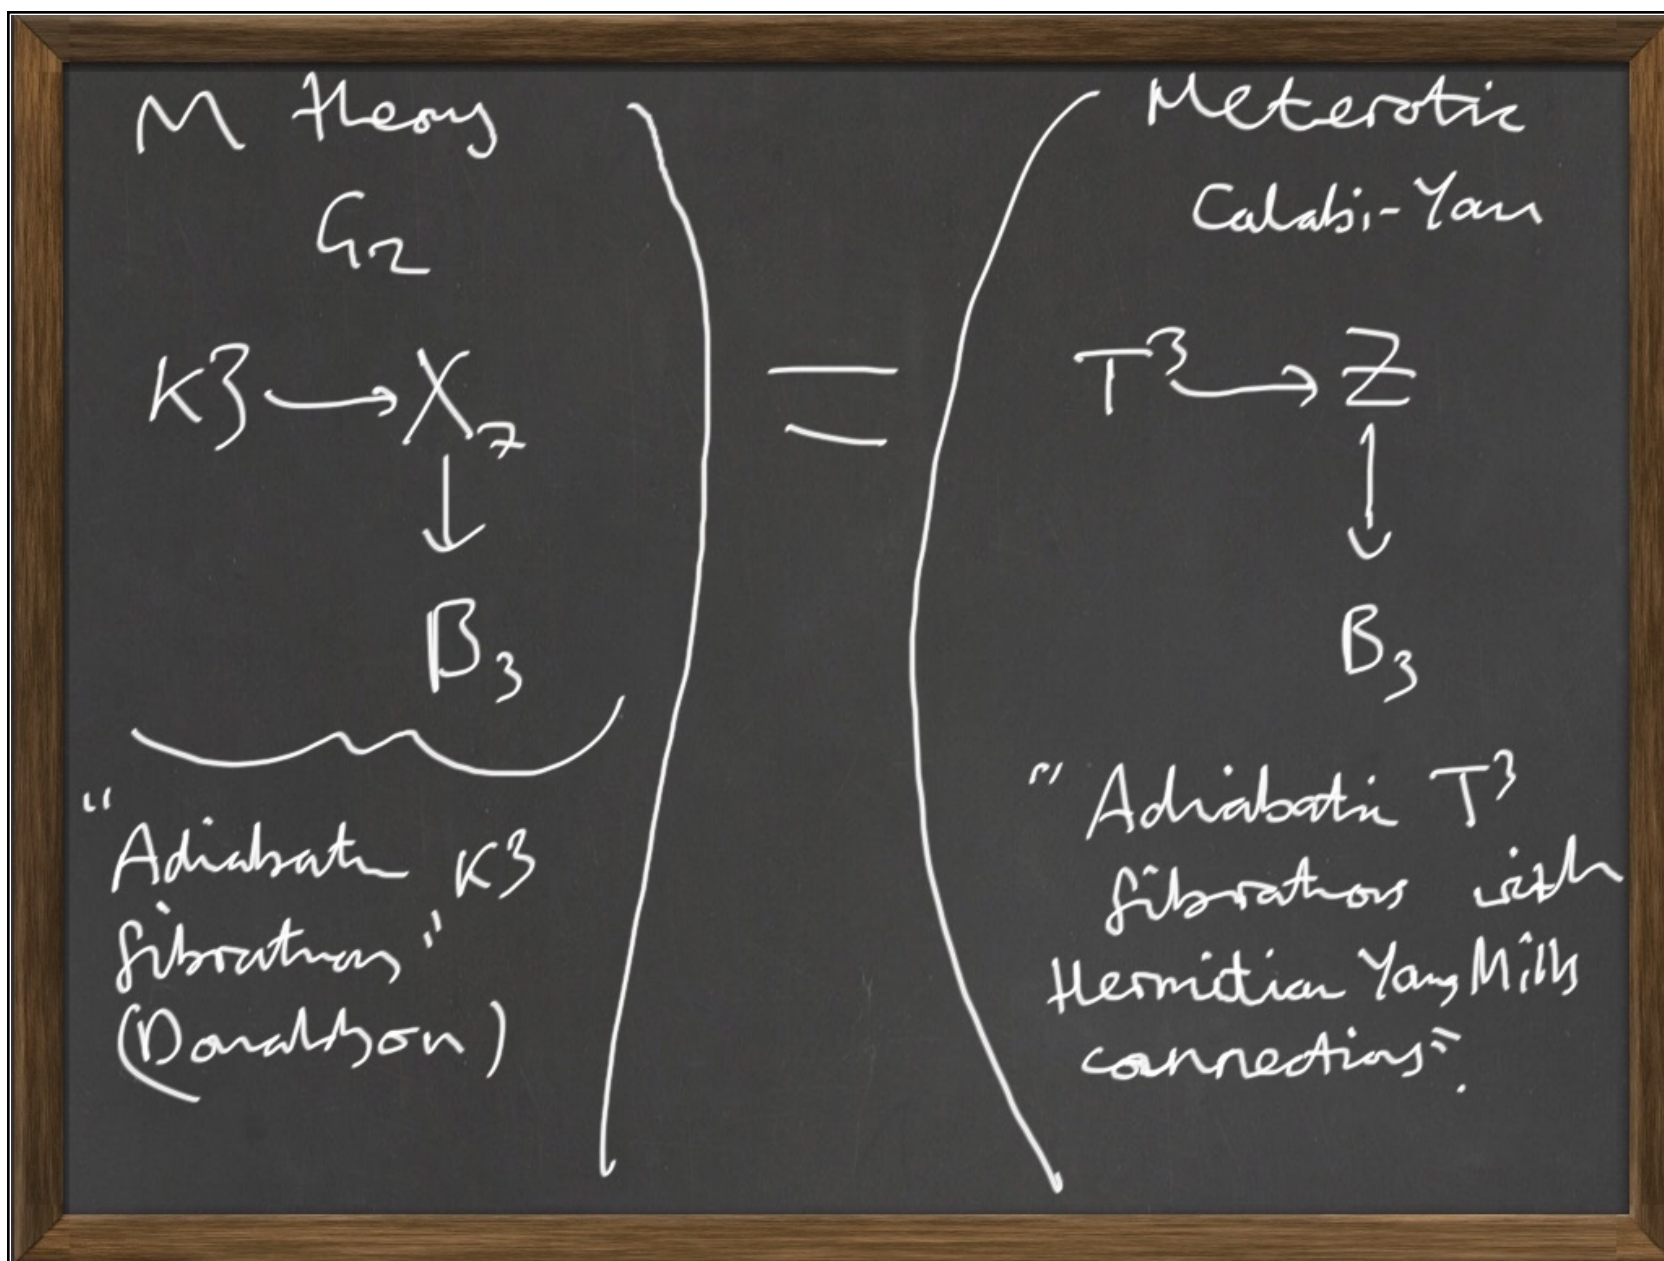 M theory
G2
K3 → X7
↓
B3
"Adiabatic K3
fibrations"
(Donaldson)
=
Heterotic
Calabi-Yau
T³ → Z
↓
B3
"Adiabatic T³
fibrations with
Hermitian Yang Mills
connections".